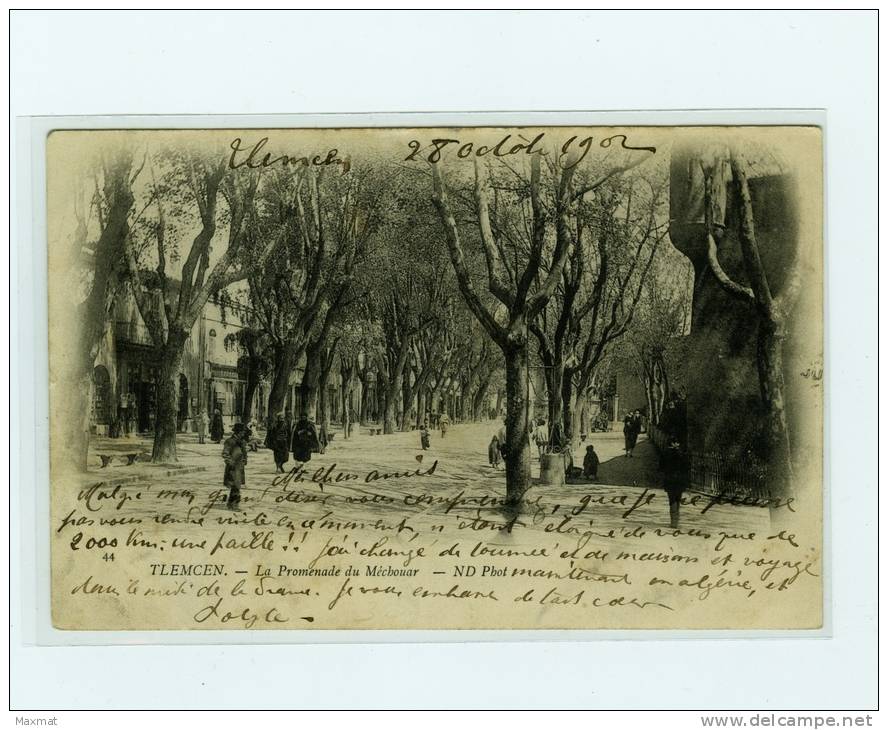 Tlemcen 28 Octobre 1902
Mes chers amis
Malgré mon grand désir vous comprenez que je ne puisse
pas vous rendre visite en ce moment n'étant éloigné de vous que de
2000 km: une paille!! j'ai changé de tournée et de maisons et voyage
44
TLEMCEN. — La Promenade du Méchouar — ND Phot
maintenant en algérie, et
dans le midi de la France. Je vous embrasse de tout cœur
Maxmat
http://www.delcampe.net